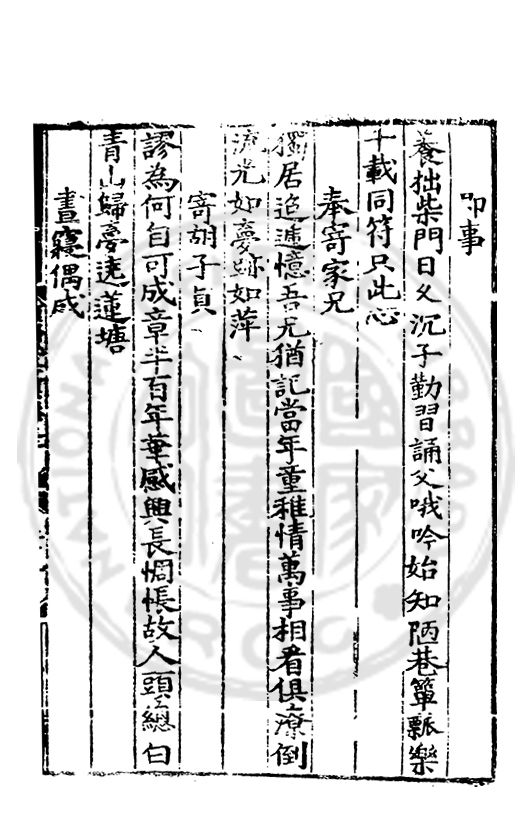 即事
養拙柴門日夕沉子勤習誦父哦吟始知陋巷簞瓢樂
千載同符只此心
奉寄家兄
獨居追遞憶吾兄猶記當年童稚情萬事相看俱潦倒
流光如夢跡如萍
寄胡子貞
謬為何自可成章半百年華感興長惆悵故人頭總白
青山歸夢遶蓮塘
晝寢偶成